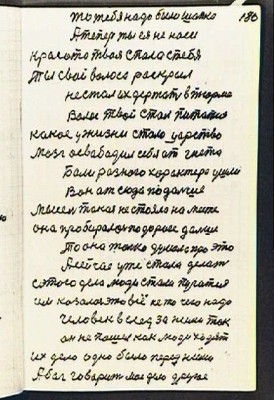 ты тебя надо было шапко 180
А теперь ты ея не носи
красото твоя спала с тебя
Ты свой волосо раскрыл
не стал их держать в тюрьме
Волос твой стал питатся
какое у жизни стало царство
Мозг освабадил себя от гнета
Боли разного характера ушли
Вон от сюда подальше
Мысль такая не стояло на месте
она пробиралось по дороге дальше
То она только думала про это
А сейчас уже стала делать
с этого дела люди стали пугатся
им казалось это всё не то чего надо
Человек в след за ними так
он не пошел как люди ходят
их дело одно было перед ними
А бог говорит мое дело другое